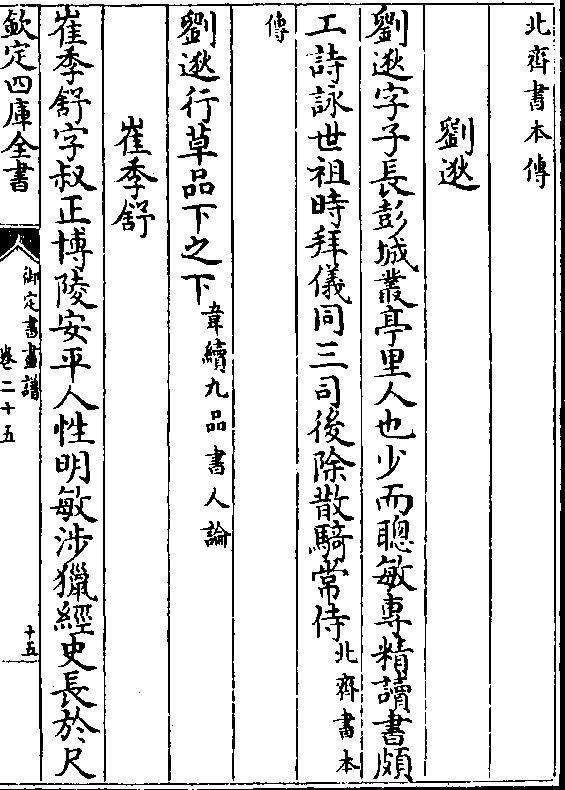 北齊書本傳
劉逖
劉逖字子長彭城叢亭里人也少而聰敏專精讀書頗
工詩詠世祖時拜儀同三司後除散騎常侍北齊書本
傳
劉逖行草品下之下韋續九品書人論
崔季舒
崔季舒字叔正博陵安平人性明敏涉獵經史長於尺
欽定四庫全書
御定書畫譜
卷二十五
十五